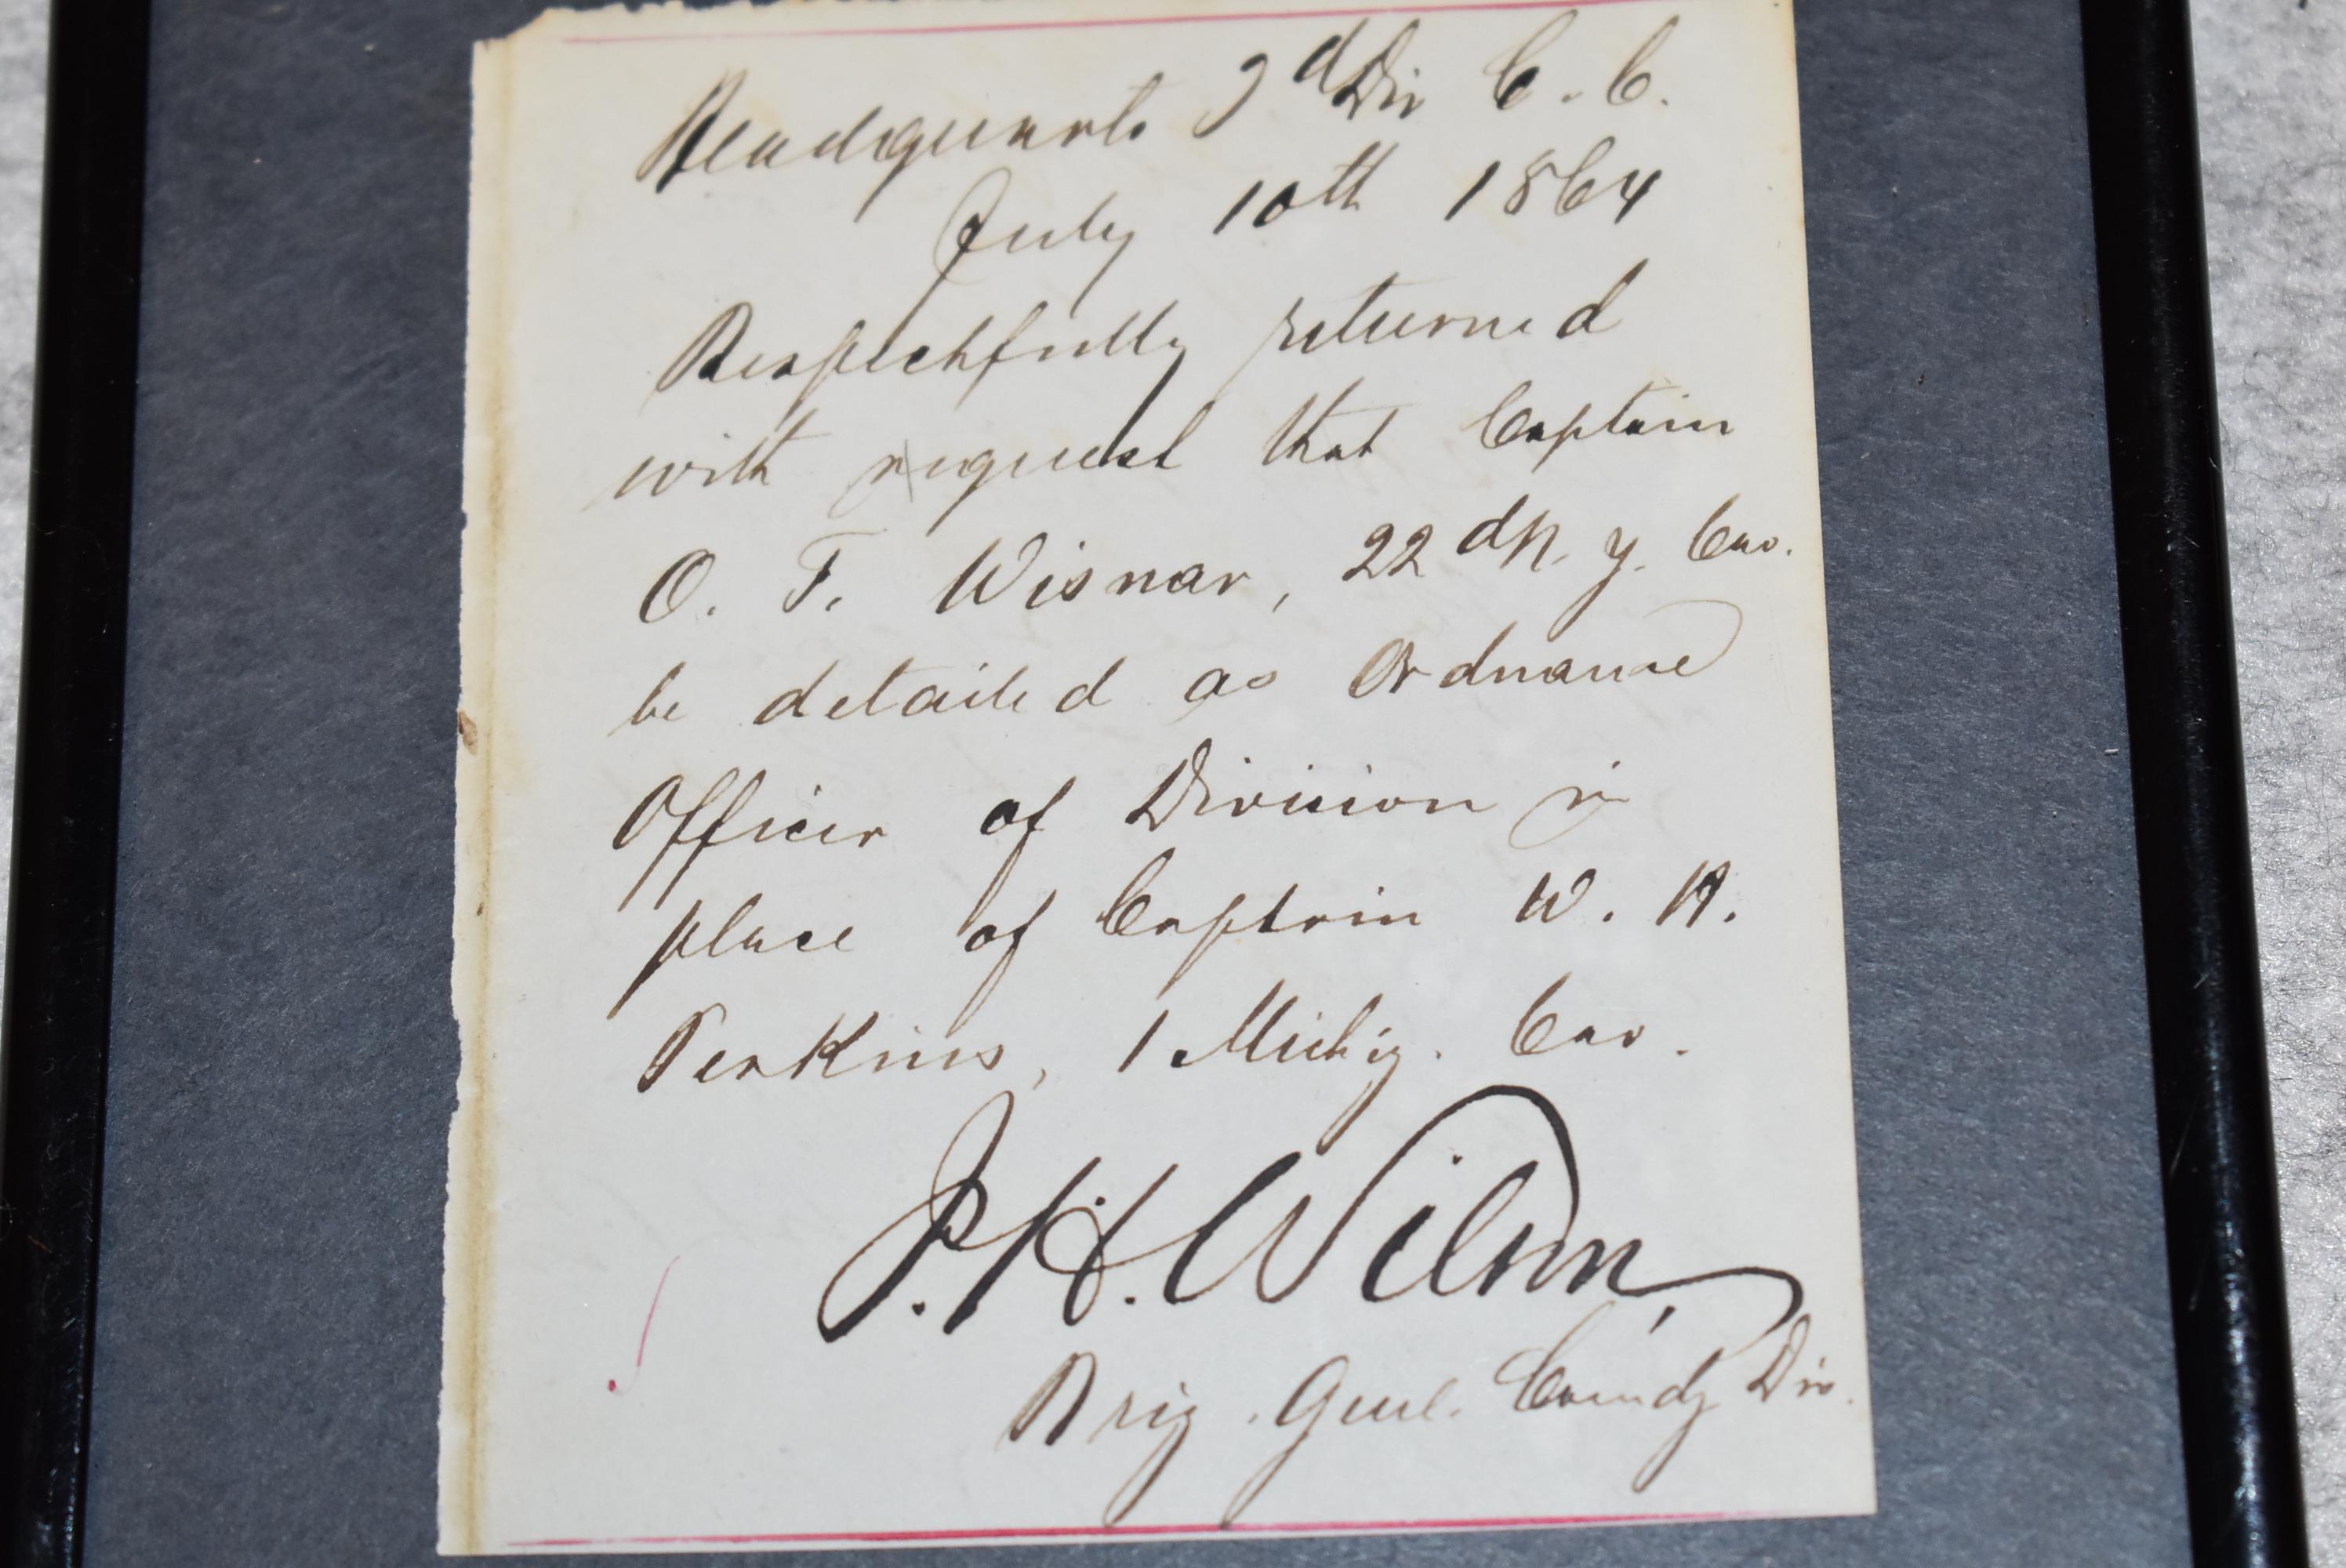 Headquarts 3d Div C. C.
July 10th 1864
Respectfully returned
with request that Captain
O. F. Wisnar, 22 d N. Y. Cav.
be detailed as Ordnance
Officer of Division in
place of Captain W. H.
Perkins, 1 Michig. Cav.
J. H. Wilson,
Brig. Genl. Comdg Div.